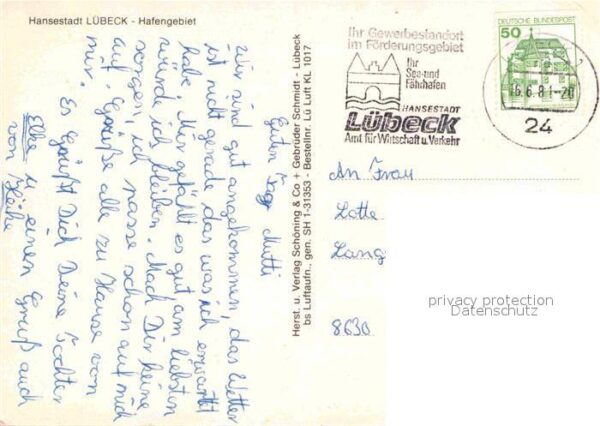 Hansestadt LÜBECK - Hafengebiet
Guten Tag Mutti
Wir sind gut angekommen, das Wetter
ist nicht gerade das was ich erwartet
habe. Mir gefällt es gut am liebsten
würde ich bleiben. Mach Dir keine
sorgen, ich passe schon auf mich
auf. Grüße alle zu Hause von
mir.
Es Grüßt Dich Deine Tochter
Elke u einen Gruß auch
von Heike
Herst. u. Verlag Schöning & Co + Gebrüder Schmidt - Lübeck
bs Luftaufn., gen. SH 1-31353 - Bestellnr. Lü Luft KL 1017
Ihr Gewerbestandort
im Förderungsgebiet
Ihr
See-und
Fährhafen
HANSESTADT
Lübeck
Amt für Wirtschaft u. Verkehr
DEUTSCHE BUNDESPOST
50
16.6.81-20
24
An Frau
Lotte
Lang
8630
privacy protection
Datenschutz